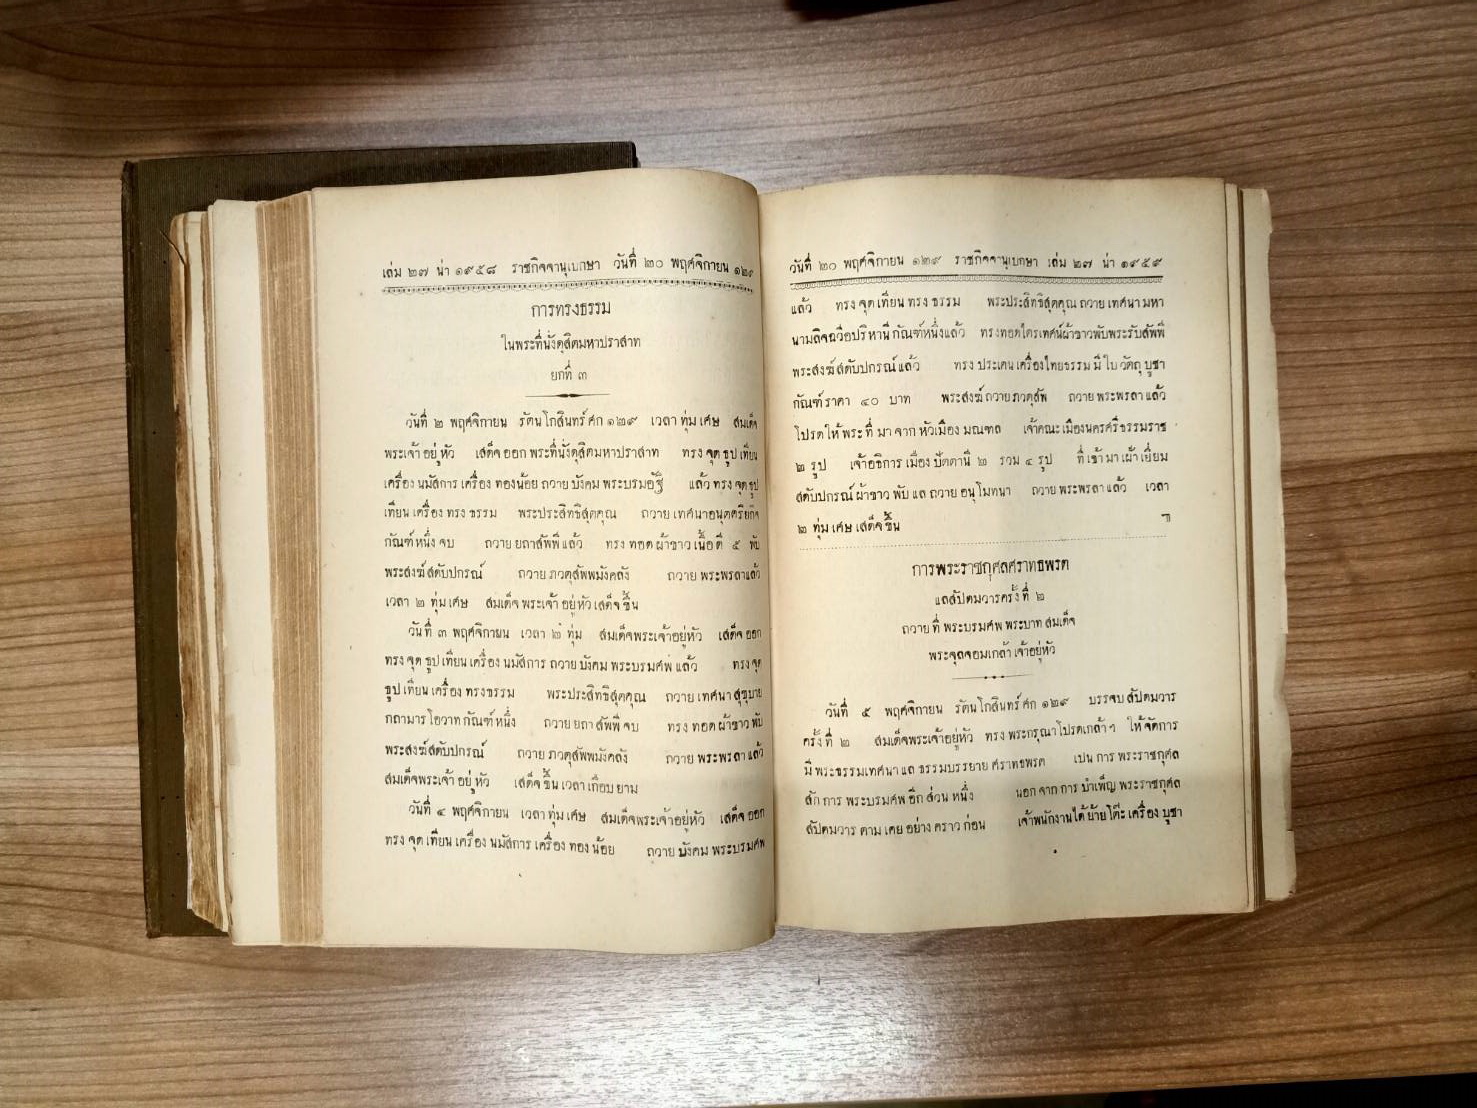 เล่ม ๒๗ น่า ๑๙๕๘ ราชกิจจานุเบกษา วันที่ ๒๐ พฤศจิกายน ๑๒๙
การทรงธรรม
ในพระที่นั่งดุสิตมหาปราสาท
ยกที่ ๓
วันที่ ๒ พฤศจิกายน รัตนโกสินทร์ศก ๑๒๙ เวลาทุ่มเศษ สมเด็จ
พระเจ้าอยู่หัว เสด็จออกพระที่นั่งดุสิตมหาปราสาท ทรงจุดธูปเทียน
เครื่องนมัสการเครื่องทองน้อยถวายบังคมพระบรมอัฐิ แล้วทรงจุดธูป
เทียนเครื่องทรงธรรม พระประสิทธิสุตคุณ ถวายเทศนาอนุตตริยกิจ
กัณฑ์หนึ่งจบ ถวายยถาสัพพีแล้ว ทรงทอดผ้าขาวเนื้อดี ๕ พับ
พระสงฆ์สดับปกรณ์ ถวายภวตุสัพพมังคลัง ถวายพระพรลาแล้ว
เวลา ๒ ทุ่มเศษ สมเด็จพระเจ้าอยู่หัวเสด็จขึ้น
วันที่ ๓ พฤศจิกายน เวลา ๒ ทุ่ม สมเด็จพระเจ้าอยู่หัว เสด็จออก
ทรงจุดธูปเทียนเครื่องนมัสการถวายบังคมพระบรมศพแล้ว ทรงจุด
ธูปเทียนเครื่องทรงธรรม พระประสิทธิสุตคุณ ถวายเทศนาสุขุมาย
กถามารโอวาทกัณฑ์หนึ่ง ถวายยถาสัพพีจบ ทรงทอดผ้าขาวพับ
พระสงฆ์สดับปกรณ์ ถวายภวตุสัพพมังคลัง ถวายพระพรลาแล้ว
สมเด็จพระเจ้าอยู่หัว เสด็จขึ้นเวลาเกือบยาม
วันที่ ๔ พฤศจิกายน เวลาทุ่มเศษ สมเด็จพระเจ้าอยู่หัว เสด็จออก
ทรงจุดเทียนเครื่องนมัสการเครื่องทองน้อย ถวายบังคมพระบรมศพ
วันที่ ๒๐ พฤศจิกายน ๑๒๙ ราชกิจจานุเบกษา เล่ม ๒๗ น่า ๑๙๕๙
แล้ว ทรงจุดเทียนทรงธรรม พระประสิทธิสุตคุณถวายเทศนามหา
นามลิจฉวีอปริหานีกัณฑ์หนึ่งแล้ว ทรงทอดไตรเทศน์ผ้าขาวพับพระรับสัพพี
พระสงฆ์สดับปกรณ์แล้ว ทรงประเคนเครื่องไทยธรรมมีใบวัตถุบูชา
กัณฑ์ราคา ๔๐ บาท พระสงฆ์ถวายภวตุสัพ ถวายพระพรลาแล้ว
โปรดให้พระที่มาจากหัวเมืองมณฑล เจ้าคณะเมืองนครศรีธรรมราช
๒ รูป เจ้าอธิการเมืองปัตตานี ๒ รวม ๔ รูป ที่เข้ามาเฝ้าเยี่ยม
สดับปกรณ์ผ้าขาวพับแลถวายอนุโมทนา ถวายพระพรลาแล้ว เวลา
๒ ทุ่มเศษเสด็จขึ้น ๆ
การพระราชกุศลศราทธพรต
แลสัปตมวารครั้งที่ ๒
ถวายที่พระบรมศพพระบาทสมเด็จ
พระจุลจอมเกล้าเจ้าอยู่หัว
วันที่ ๕ พฤศจิกายน รัตนโกสินทร์ศก ๑๒๙ บรรจบสัปตมวาร
ครั้งที่ ๒ สมเด็จพระเจ้าอยู่หัว ทรงพระกรุณาโปรดเกล้าฯ ให้จัดการ
มีพระธรรมเทศนาแลธรรมบรรยายศราทธพรต เปนการพระราชกุศล
สักการพระบรมศพอีกส่วนหนึ่ง นอกจากการบำเพ็ญพระราชกุศล
สัปตมวารตามเคยอย่างคราวก่อน เจ้าพนักงานได้ย้ายโต๊ะเครื่องบูชา